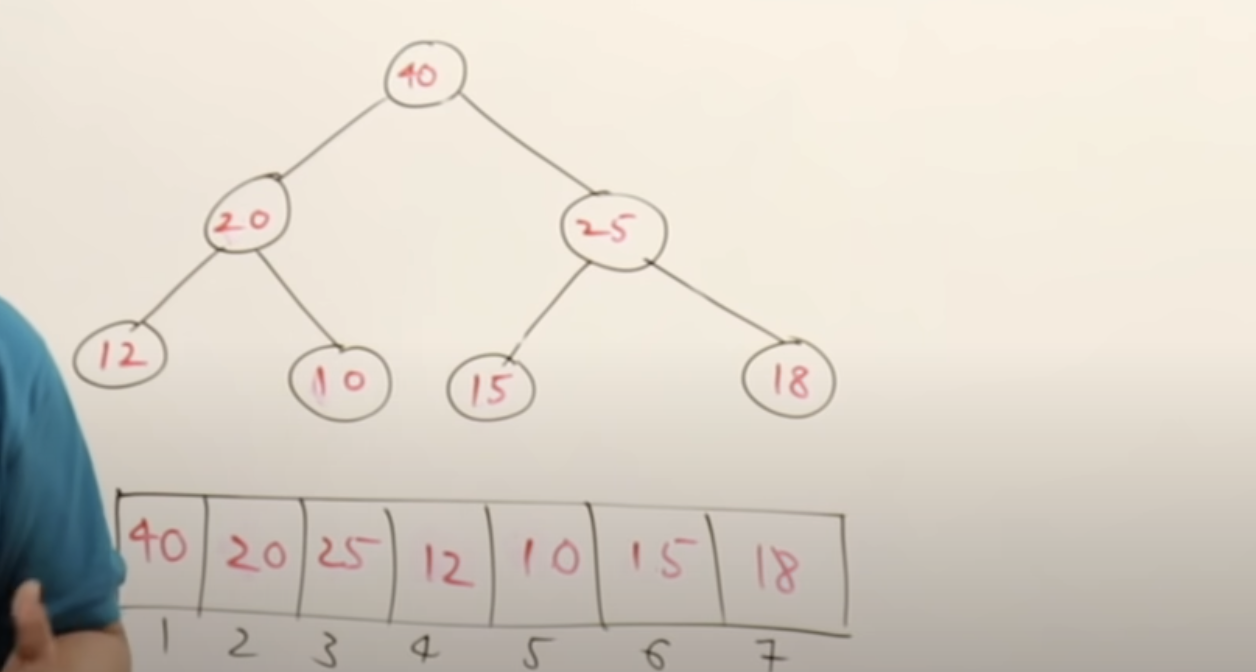 40
20 25
12 10 15 18
40 20 25 12 10 15 18
1 2 3 4 5 6 7